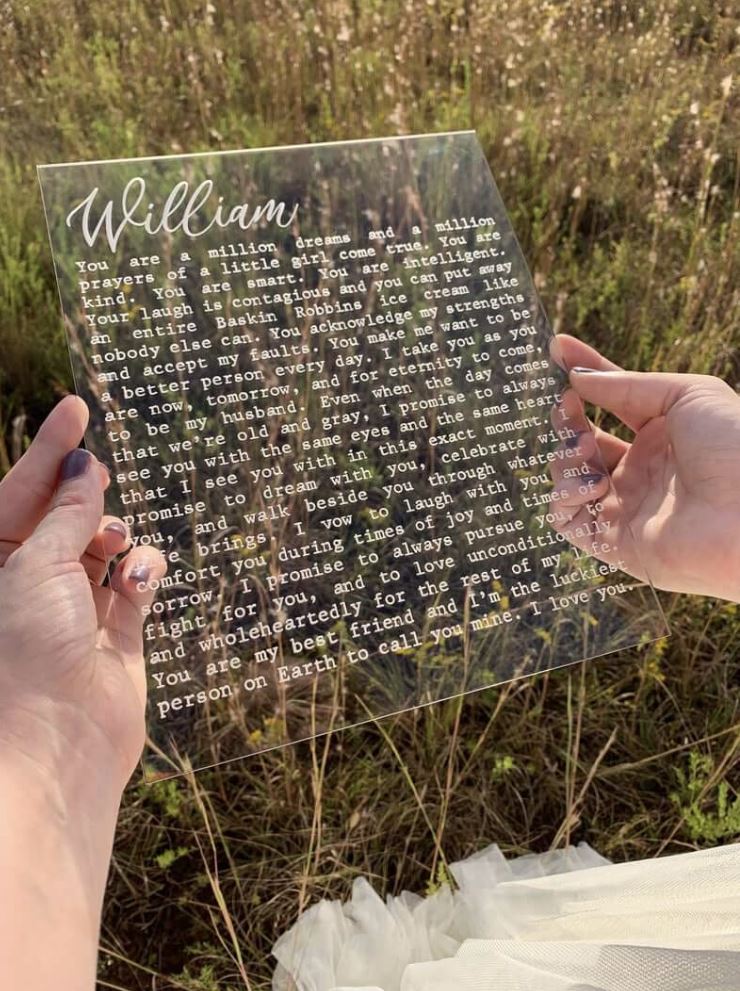 William
You are a million dreams and a million
prayers of a little girl come true. You are
kind. You are smart. You are intelligent.
Your laugh is contagious and you can put away
an entire Baskin Robbins ice cream like
nobody else can. You acknowledge my strengths
and accept my faults. You make me want to be
a better person every day. I take you as you
are now, tomorrow, and for eternity to come,
to be my husband. Even when the day comes
that we're old and gray, I promise to always
see you with the same eyes and the same heart
that I see you with in this exact moment. I
promise to dream with you, celebrate with
you, and walk beside you through whatever
life brings. I vow to laugh with you and
comfort you during times of joy and times of
sorrow. I promise to always pursue you, to
fight for you, and to love unconditionally
and wholeheartedly for the rest of my life.
You are my best friend and I'm the luckiest
person on Earth to call you mine. I love you.